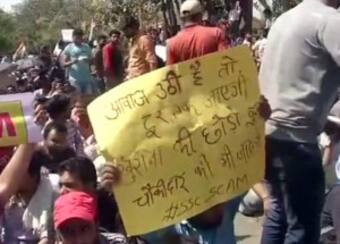 आवाज उठी है तो
दूर तक जाएगी
खुराना को छोड़ो
चौकीदार को भी
#SSC SCAM